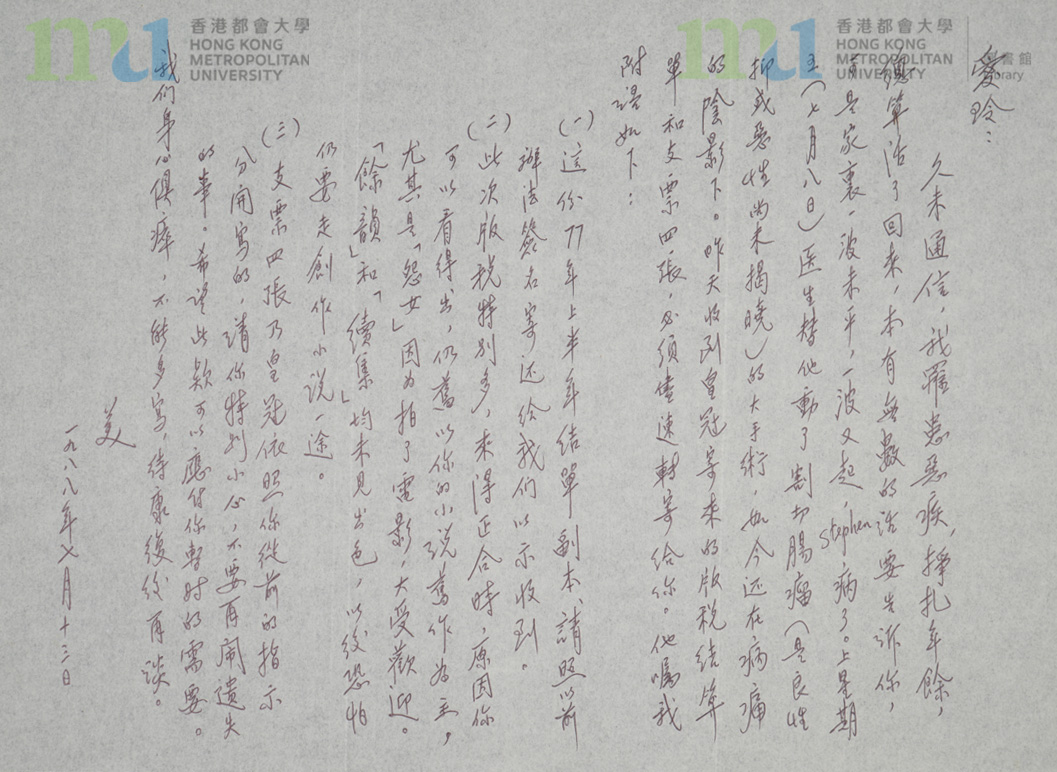 愛玲：
久未通信，我罹患惡疾，掙扎年餘，
總算活了回來，本有無數的話要告訴你，
可是家裏一波未平，一波又起，Stephen病了。上星期
五（七月八日）医生替他動了割切腸瘤（是良性
抑或惡性尚未揭曉）的大手術，如今还在病痛
的陰影下。昨天收到皇冠寄來的版稅結算
單和支票四張，必須儘速轉寄給你。他囑我
附语如下：
（一）這份77年上半年結單副本、請照以前
辦法簽名寄还給我们以示收到。
（二）此次版稅特別多，來得正合時，原因你
可以看得出，仍舊以你的小说舊作為主，
尤其是「怨女」因为拍了電影，大受歡迎。
「餘韻」和「續集」均未見出色，以後恐怕
仍要走創作小说一途。
（三）支票四張乃皇冠依照你從前的指示
分開寫的，請你特別小心，不要再鬧遺失
的事。希望此款可以應付你暫时的需要。
我们身心俱瘁，不能多寫，待康復後再談。
美
一九八八年七月十三日
香港都會大學
HONG KONG
METROPOLITAN
UNIVERSITY
香港都會大學
HONG KONG
METROPOLITAN
UNIVERSITY
書館
rary